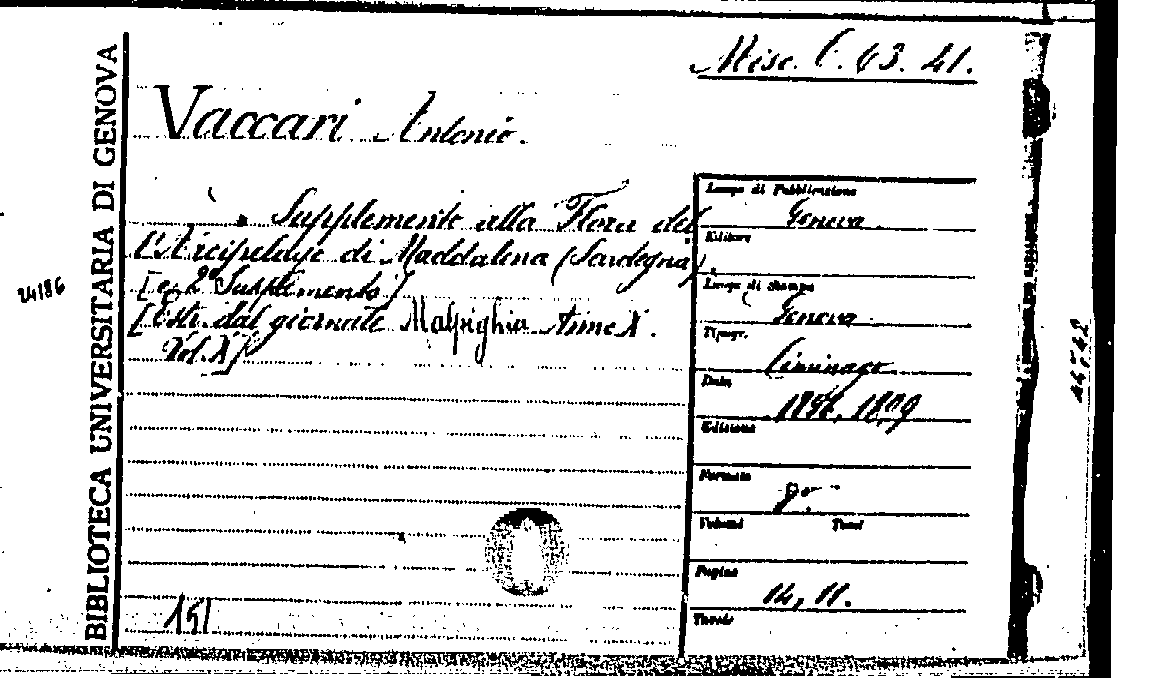 BIBLIOTECA UNIVERSITARIA DI GENOVA
Misc. C. 63. 41.
Vaccari Antonio.
Supplemento alla Flora del
l'Arcipelago di Maddalena (Sardegna).
[e 2° Supplemento]
[Estr. dal giornale Malpighia Anno X.
Vol. X]
151
24186
Luogo di Pubblicazione
Genova
Editore
Luogo di Stampa
Genova
Tipogr.
Ciminago
Data
Edizione
Formato
8°
Volumi Tomi
Pagine
14, 11.
Tavole